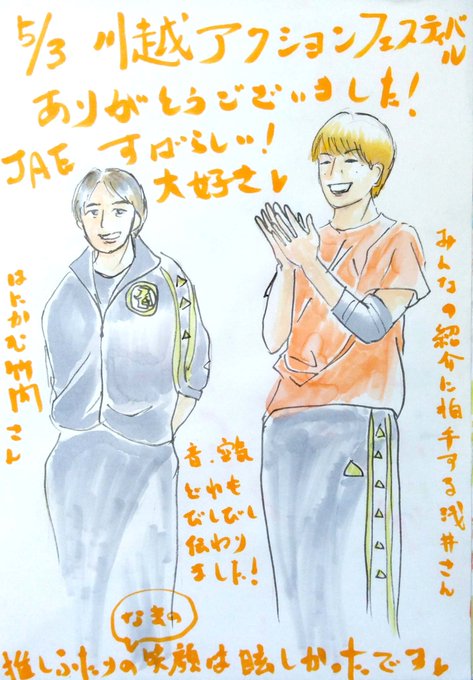 5/3 川越アクションフェスティバル
ありがとうございました!
JAE すばらしい!
大好き♪
みんなの紹介に拍手する浅井さん
はにかむ竹内さん
JAE
どれも
びしびし
伝わり
ました!
なまの
推しふたりの笑顔は眩しかったです♪